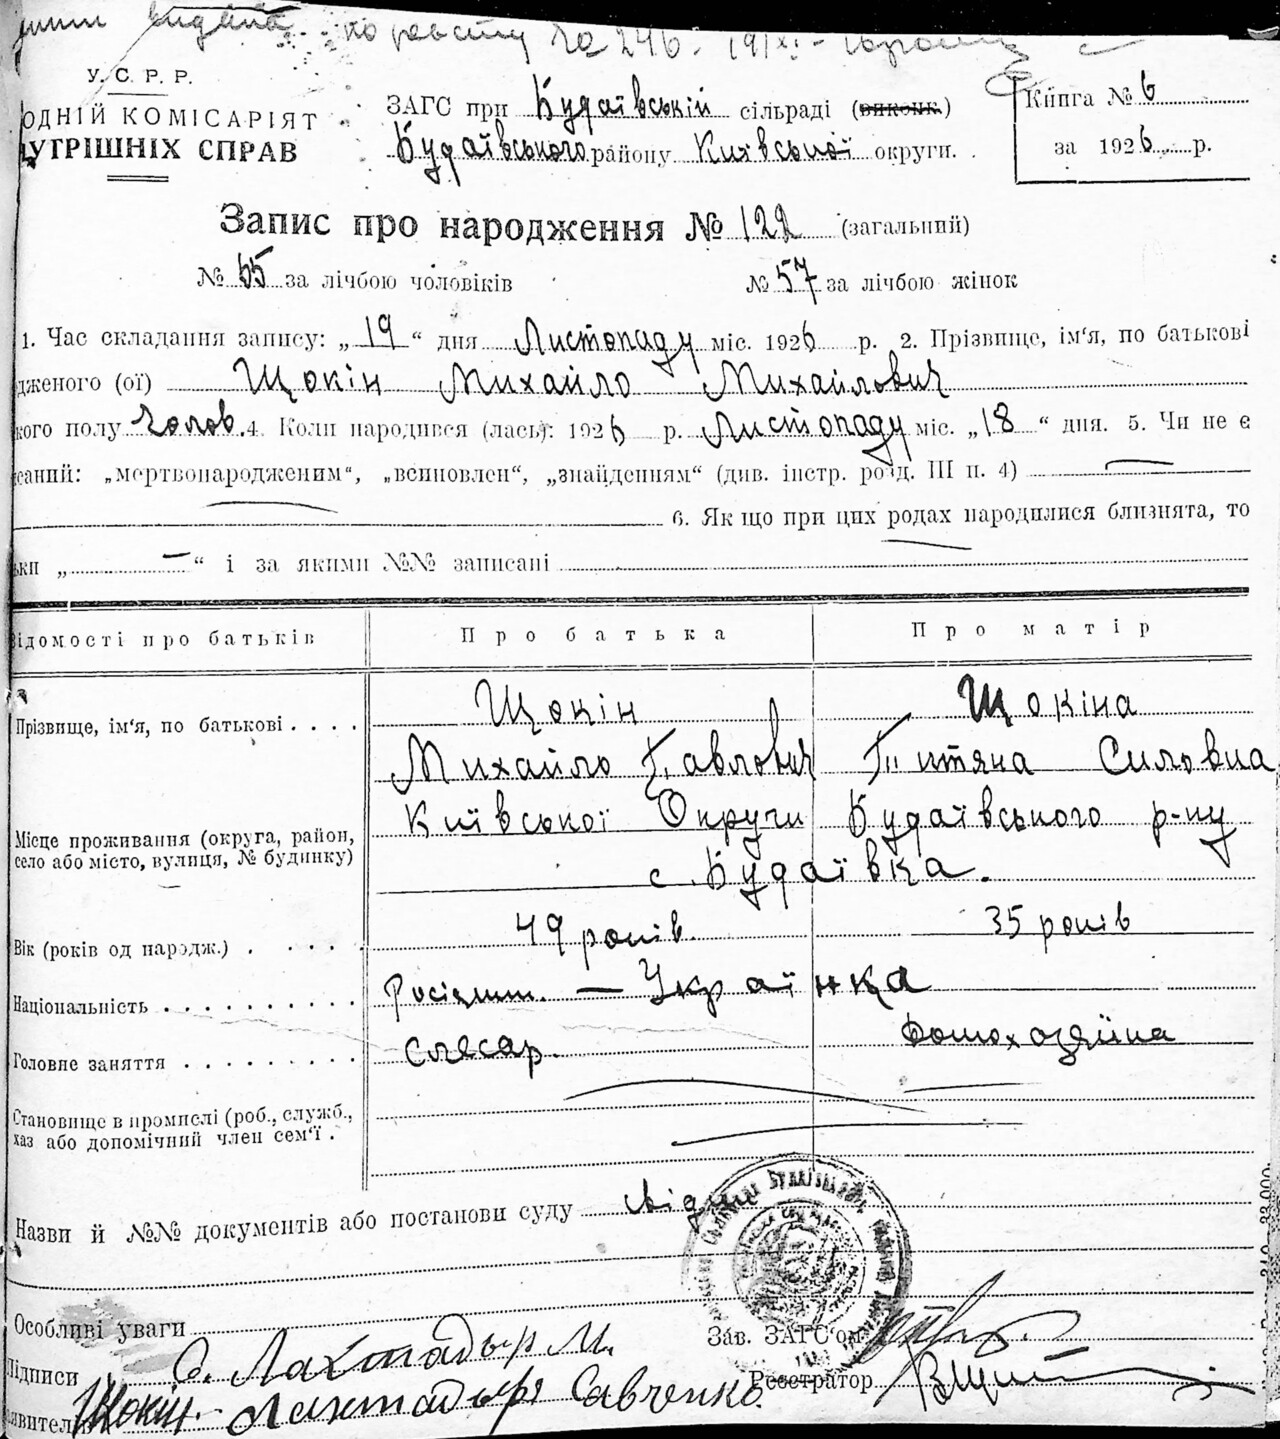 видана по реєстру
У. С. Р. Р.
ОДНІЙ КОМІСАРІЯТ
УТРІШНІХ СПРАВ
ЗАГС при Будаївській сільраді (виконк.)
Будаївського району Київської округи.
Книга № 6
за 1926 р.
Запис про народження № 122 (загальний)
№ 65 за лічбою чоловіків № 57 за лічбою жінок
1. Час складання запису: „19“ дня Листопаду міс. 1926 р. 2. Прізвище, ім'я, по батькові
дженого (ої) Щокін Михайло Михайлович
кого полу Чолов. 4. Коли народився (лась): 1926 р. Листопаду міс. „18“ дня. 5. Чи не є
саний: „мертвонародженим“, „всиновлен“, „знайденням“ (див. інстр. розд. III п. 4) —
6. Як що при цих родах народилися близнята, то
ьки „ — “ і за якими №№ записані
Відомості про батьків Про батька Про матір
Прізвище, ім'я, по батькові . . . . Щокін Щокіна
Михайло Павлович Титяна Силовна
Місце проживання (округа, район, село або місто, вулиця, № будинку) Київської Округи Будаївського р-ну
с. Будаївка.
Вік (років од народж.) . . . . . 49 років. 35 років
Національність . . . . . . . . . . Росіянин. — Українка
Головне заняття . . . . . . . . Слесар. Домохозяйка
Становище в промислі (роб., служб.,
хаз або допомічний член сем'ї .
Назви й №№ документів або постанови суду
Особливі уваги
Зав. ЗАГС'ом
Підписи Лахтадыр М.
Реєстратор
явителів Щокін. Лахтадыря Савченко